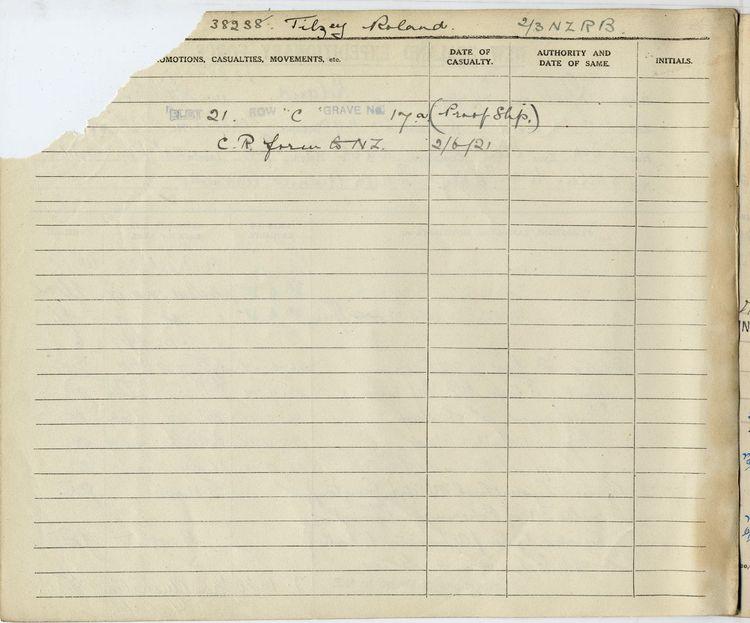 38238. Tilzey Roland. 2/3 NZRB
OMOTIONS, CASUALTIES, MOVEMENTS, etc. DATE OF CASUALTY. AUTHORITY AND DATE OF SAME. INITIALS.
21. ROW "C" GRAVE No. 17a. (Proof Slip.)
C.R. form to NZ. 2/6/21